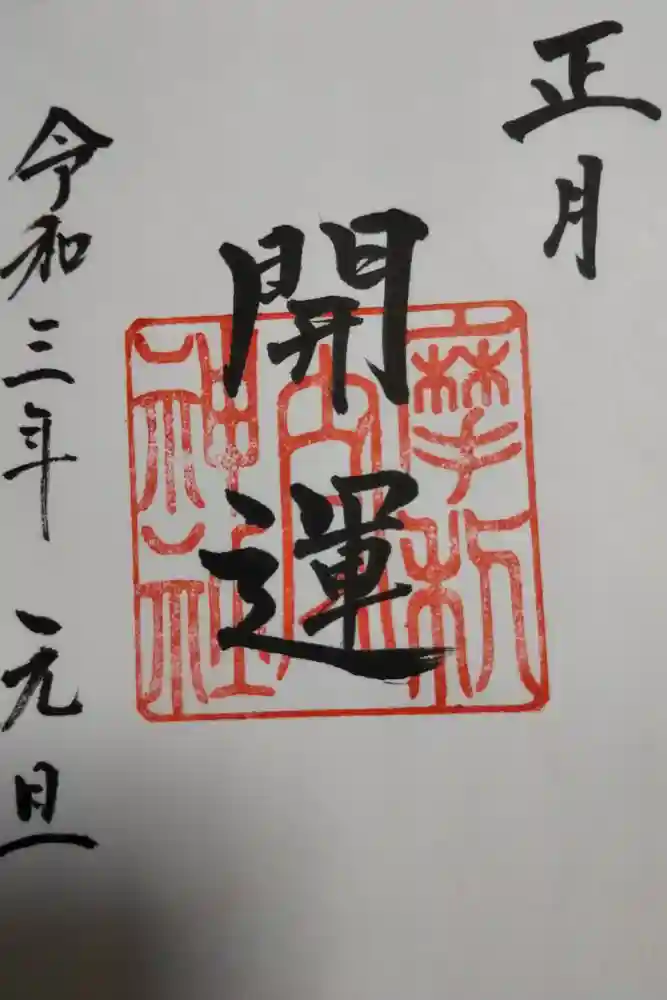 正月
開運
令和三年 元旦
神社